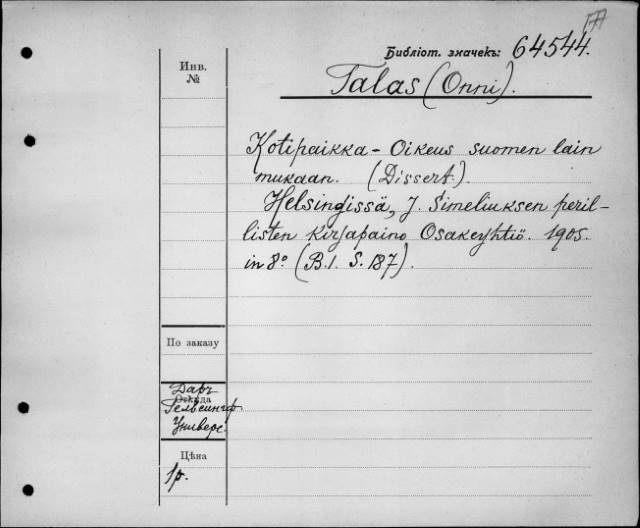 Библіот. значекъ: 64544.
Инв.
№
Talas (Onni).
Kotipaikka - Oikeus suomen lain
mukaan. (Dissert.).
Helsingissä, J. Simeliuksen peril-
listen Kirjapaino Osakeyhtiö. 1905.
in 8° (B.1. S. 187).
По заказу
Даръ
Откуда
Гельсингф.
Универс.
Цѣна
1р.